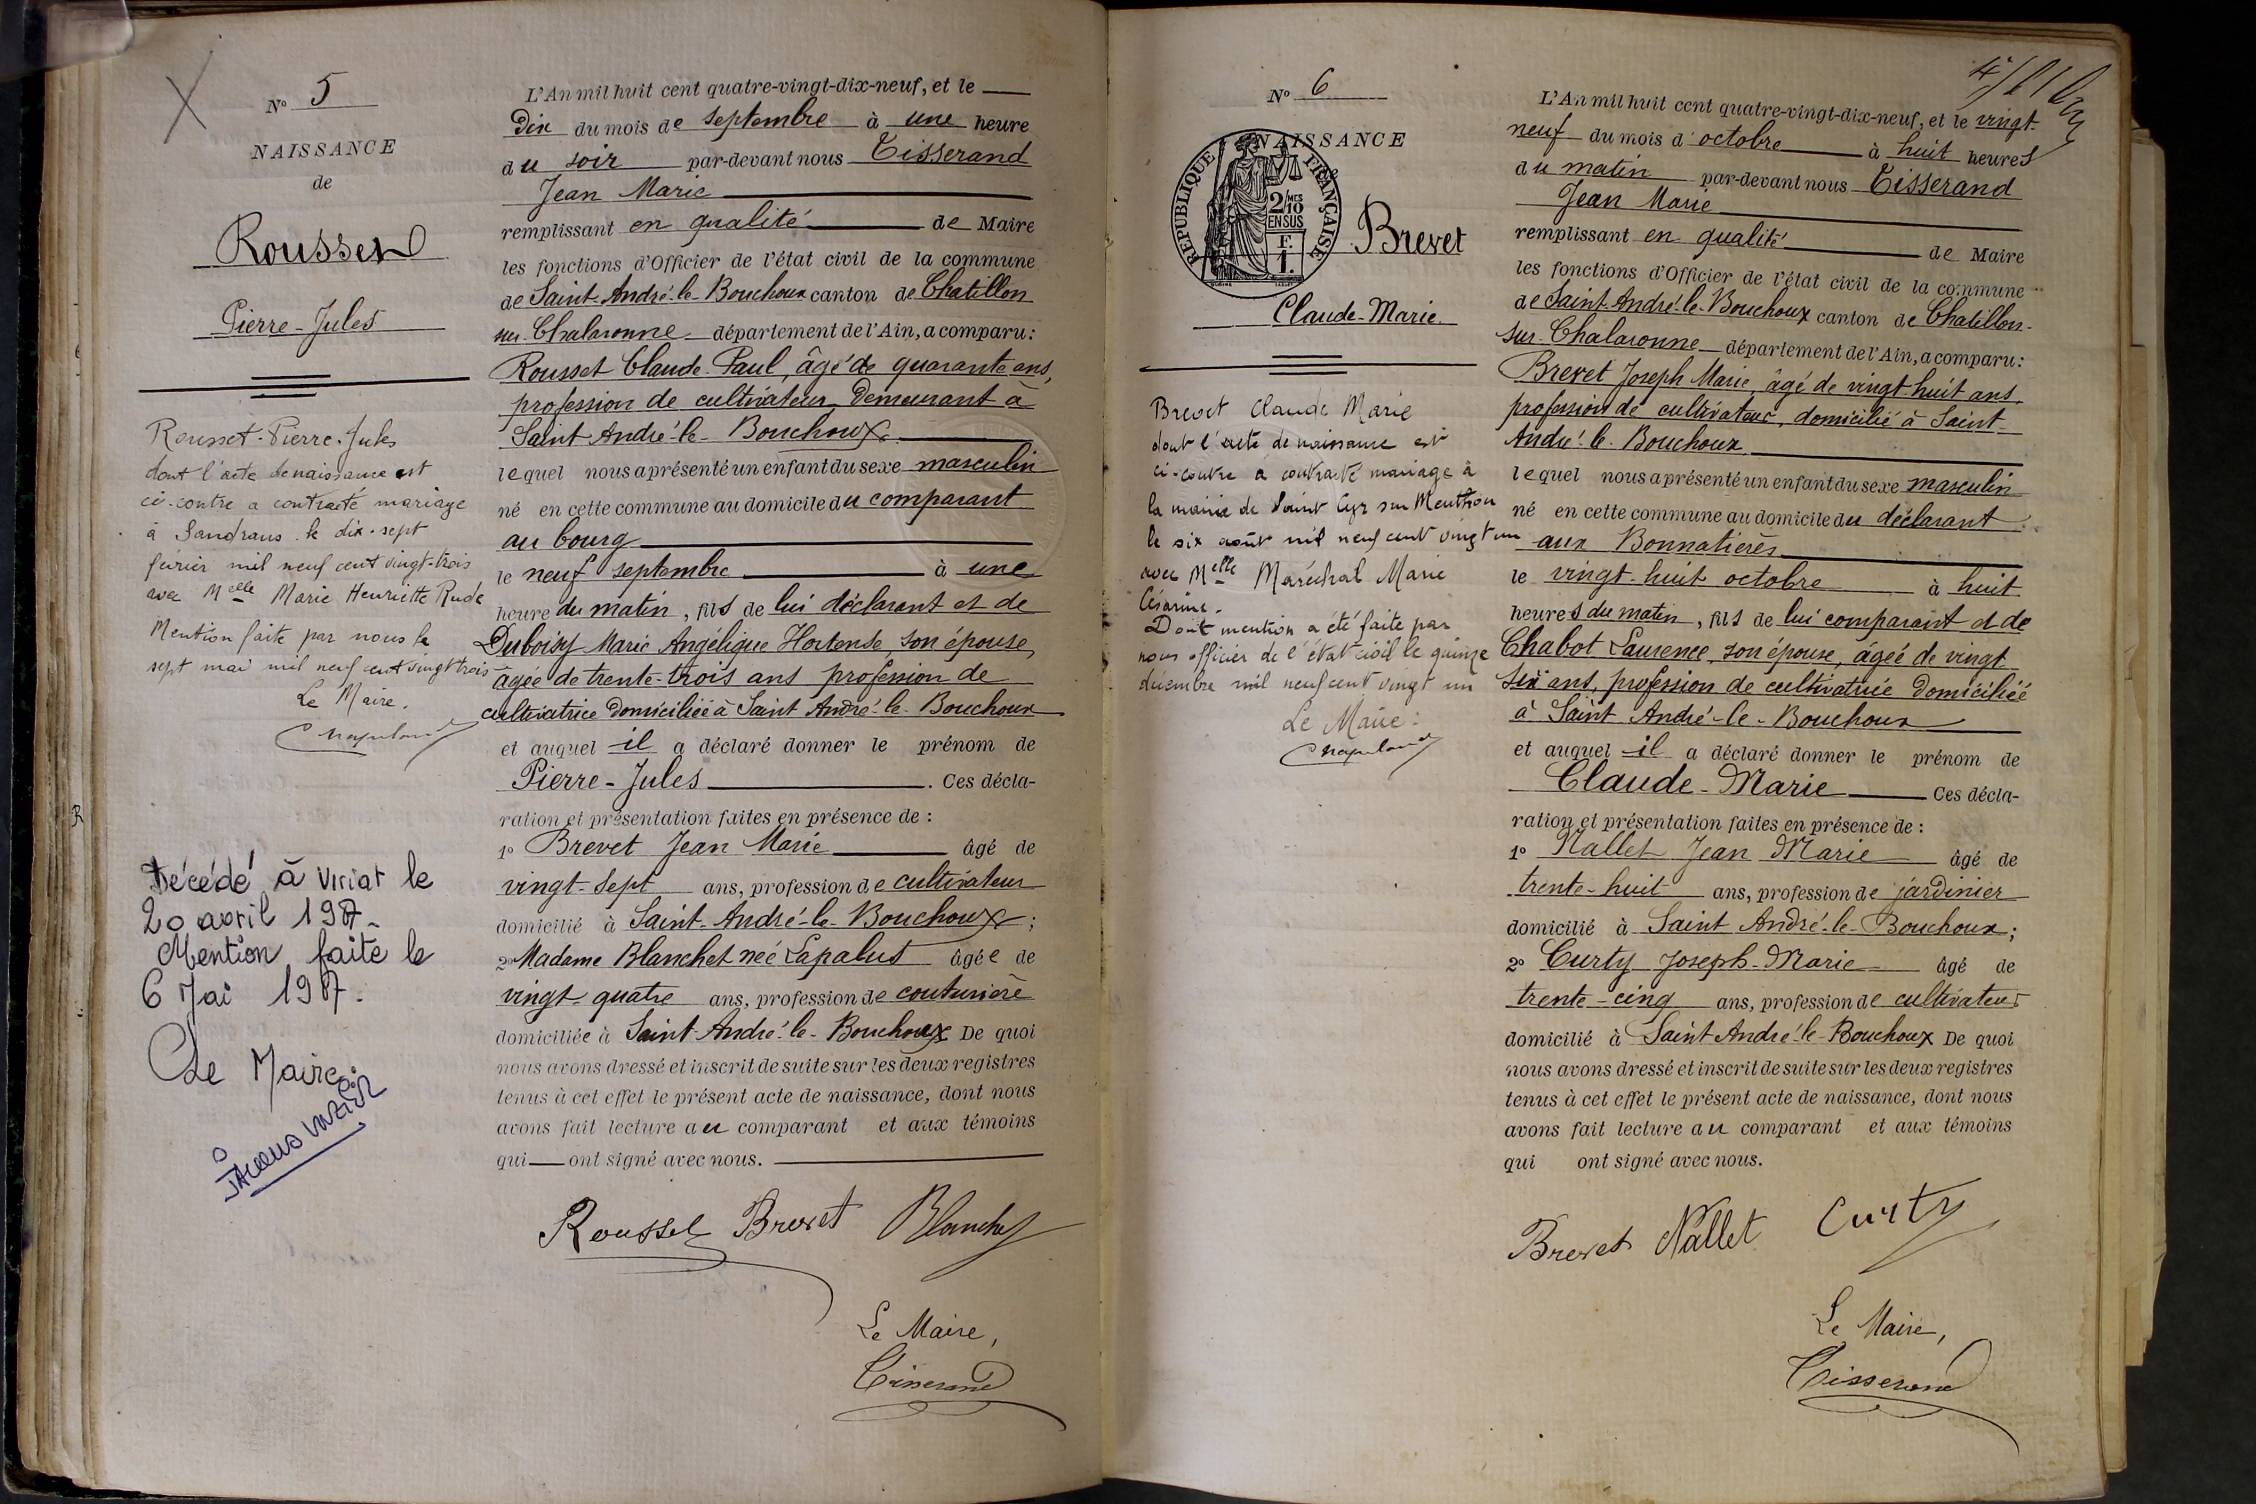 N° 5
NAISSANCE
de
Rousset
Pierre-Jules
Rousset-Pierre-Jules
dont l'acte de naissance est
ci-contre a contracté mariage
à Sandrans le dix-sept
février mil neuf cent vingt-trois
avec Melle Marie Henriette Rude
Mention faite par nous le
sept mai mil neuf cent vingt trois
Le Maire.
Décédé à Viriat le
20 avril
Mention faite le
6 Mai
Le Maire.
L'An mil huit cent quatre-vingt-dix-neuf, et le
Dix du mois de septembre à une heure
du soir par-devant nous Tisserand
Jean Marie
remplissant en qualité de Maire
les fonctions d'Officier de l'état civil de la commune
de Saint-André-le-Bouchoux canton de Chatillon
sur-Chalaronne département de l'Ain, a comparu:
Rousset Claude-Paul, âgé de quarante ans,
profession de cultivateur Demeurant à
Saint André-le-Bouchoux.
lequel nous a présenté un enfant du sexe masculin
né en cette commune au domicile du comparant
au bourg
le neuf septembre à une
heure du matin, fils de lui déclarant et de
Marie Angélique Hortense, son épouse,
âgée de trente-trois ans profession de
cultivatrice Domiciliée à Saint André-le-Bouchoux
et auquel il a déclaré donner le prénom de
Pierre-Jules. Ces décla-
ration et présentation faites en présence de:
1° Brevet Jean Marie âgé de
vingt-sept ans, profession de cultivateur
domicilié à Saint-André-le-Bouchoux;
2° Madame Blanchet neé Lapalus âgée de
vingt-quatre ans, profession de couturière
domiciliée à Saint-André-le-Bouchoux De quoi
nous avons dressé et inscrit de suite sur les deux registres
tenus à cet effet le présent acte de naissance, dont nous
avons fait lecture au comparant et aux témoins
qui ont signé avec nous.
Rousset Brevet Blanchet
Le Maire,
Tisserand
N° 6
NAISSANCE
REPUBLIQUE FRANÇAISE
2/10MES
EN SUS
F.
1.
Brevet
Claude-Marie.
Brevet Claude Marie
dont l'acte de naissance est
ci-contre a contracté mariage à
la mairie de Saint Cyr sur Menthon
le six août mil neuf cent vingt un
avec Melle Maréchal Marie
Césarine.
Dont mention a été faite par
nous officier de l'état civil le quinze
décembre mil neuf cent vingt un
Le Maire:
L'An mil huit cent quatre-vingt-dix-neuf, et le vingt-
neuf du mois d'octobre à huit heures
du matin par-devant nous Tisserand
Jean Marie
remplissant en qualité de Maire
les fonctions d'Officier de l'état civil de la commune
de Saint-André-le-Bouchoux canton de Chatillon-
sur-Chalaronne département de l'Ain, a comparu:
Brevet Joseph Marie, âgé de vingt-huit ans,
profession de cultivateur, domicilié à Saint-
André-le-Bouchoux
lequel nous a présenté un enfant du sexe masculin
né en cette commune au domicile du déclarant
aux Bonnatières
le vingt-huit octobre à huit
heures du matin, fils de lui comparant et de
Chabot Laurence, son épouse, âgée de vingt
six ans, profession de cultivatrice Domiciliée
à Saint André-le-Bouchoux
et auquel il a déclaré donner le prénom de
Claude-Marie Ces décla-
ration et présentation faites en présence de:
1° Nallet Jean Marie âgé de
trente-huit ans, profession de jardinier
domicilié à Saint André-le-Bouchoux;
2° Curty Joseph-Marie âgé de
trente-cinq ans, profession de cultivateur
domicilié à Saint André-le-Bouchoux De quoi
nous avons dressé et inscrit de suite sur les deux registres
tenus à cet effet le présent acte de naissance, dont nous
avons fait lecture au comparant et aux témoins
qui ont signé avec nous.
Brevet Nallet Curty
Le Maire,
Tisserand